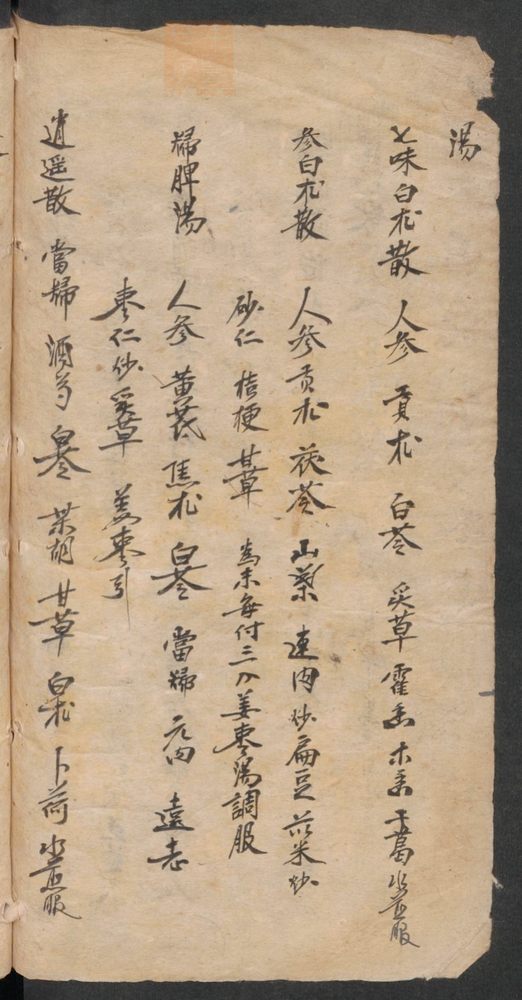 湯
七味白朮散 人參 貢朮 白苓 炙草 霍香 木香 干葛 水煎服
參白朮散 人參 貢朮 茯苓 山藥 連肉 炒扁豆 苡米炒
砂仁 桔梗 甘草 為末每付三刀姜枣湯調服
歸脾湯 人參 黃茋 焦朮 白苓 當歸 元肉 遠志
枣仁炒 炙草 姜枣引
逍遥散 當歸 酒芍 白苓 柴胡 甘草 白朮 卜荷 水煎服